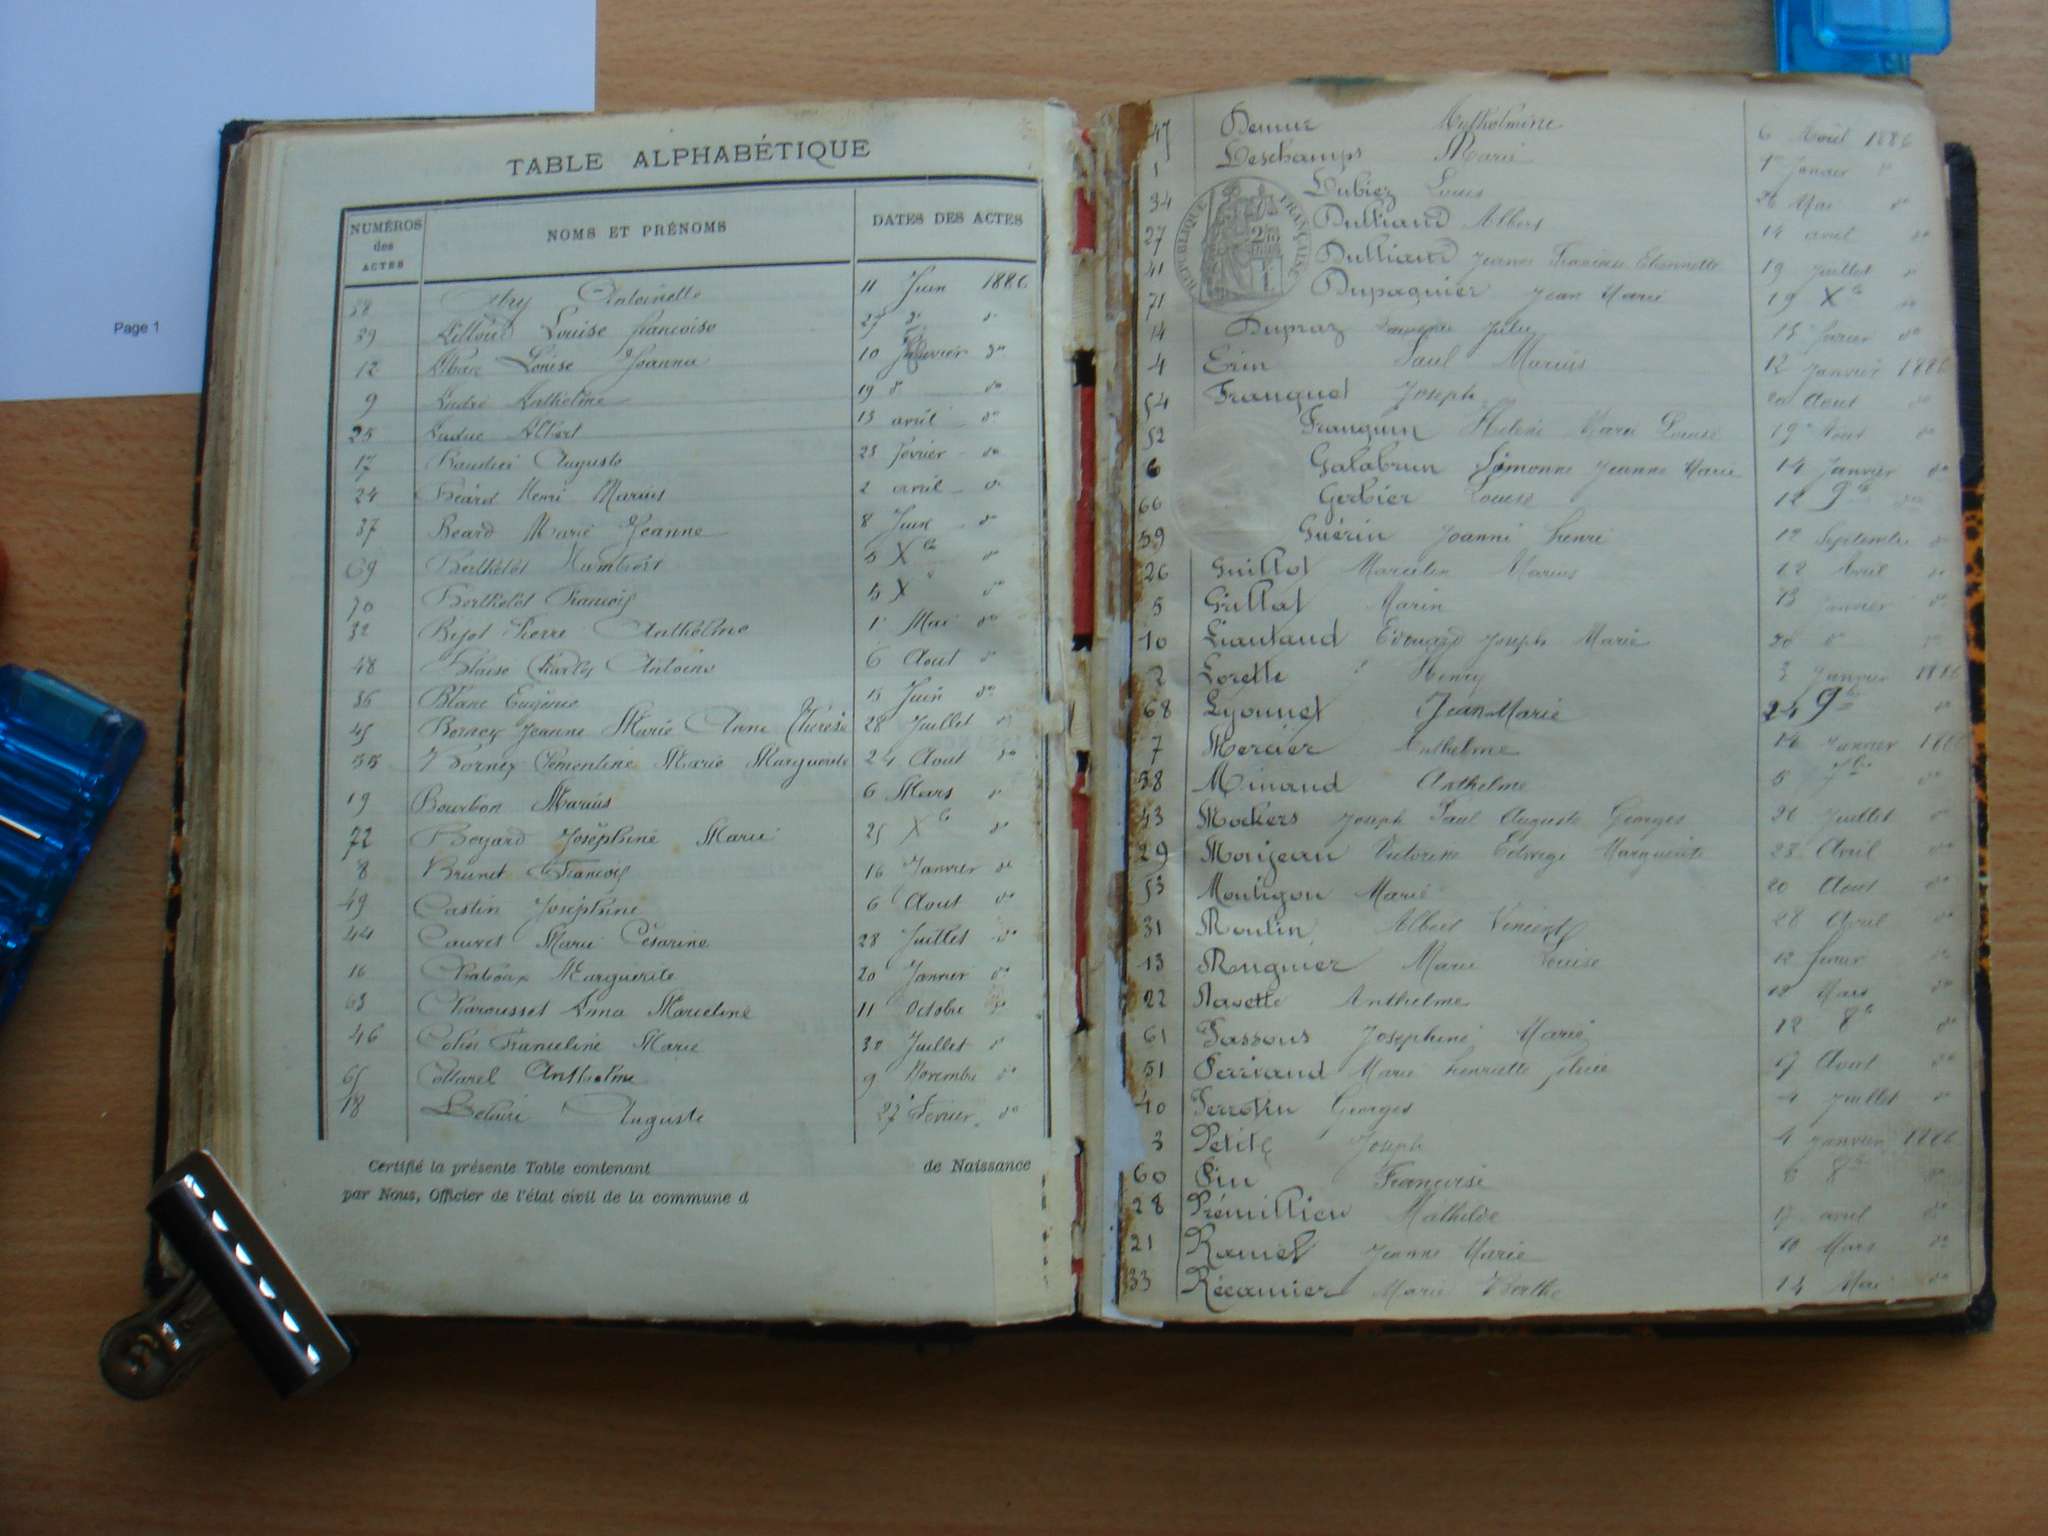 Page 1
TABLE ALPHABÉTIQUE
NUMÉROS des ACTES
NOMS ET PRÉNOMS
DATES DES ACTES
Antoinette 11 Juin 1886
39 Louise françoise 27 do
12 Louise Joanna 10 Janvier do
9 André Anthelme 19 do
25 Auduc Albert 13 avril do
17 Baudet Auguste 25 février do
24 Béard Henri Marius 2 avril do
37 Béard Marie Jeanne 8 Juin do
69 Berthelot Humbert 5 Xbre do
70 Berthelot François 5 X do
32 Bijot Pierre Anthelme 1 Mai do
48 Blaise Charles Antoine 6 Aout do
36 Blanc Eugénie 15 Juin do
45 Bornex Jeanne Marie Anne Thérèse 28 Juillet do
55 Bornex Clémentine Marie Marguerite 24 Aout do
19 Bourbon Marius 6 Mars do
72 Boyard Joséphine Marie 25 Xbre do
8 Brunet François 16 Janvier do
49 Castin Joséphine 6 Aout do
44 Cauvet Marie Césarine 28 Juillet do
16 Chaboux Marguerite 20 Janvier do
63 Charousset Anna Marceline 11 Octobre do
46 Colin Franceline Marie 30 Juillet do
65 Collarel Anthelme 9 Novembre do
18 Auguste 27 Février do
Certifié la présente Table contenant de Naissance
par Nous, Officier de l'état civil de la commune d
47 Demur Anthelmine 6 Août 1886
1 Deschamps Marie 1er Janvier do
34 Dubiez Louis 26 Mai do
27 Dulliand Albert 14 avril do
RÉPUBLIQUE FRANÇAISE
41 Dulliand Jeanne Françoise Etiennette 19 Juillet do
71 Dupasquier Jean Marie 19 Xbre do
14 Dupraz Julie 15 fevrier do
4 Erin Paul Marius 12 Janvier 1886
54 Franquet Joseph 20 Aout do
52 Franquin Hélène Marie Louise 19 Aout do
6 Galabrun Simonne Jeanne Marie 14 Janvier do
66 Gerbier Louise 12 9bre do
59 Guérin Joanni henri 12 Septembre do
26 Guillot Marcelin Marius 12 Avril do
5 Guillot Marin 13 Janvier do
10 Liautaud Edouard Joseph Marie 20 do
2 Lorette Henry 3 Janvier 1886
68 Lyonnet Jean Marie 24 9bre do
7 Mercier Anthelme 14 Janvier 1886
58 Minaud Anthelme 5 7bre do
43 Mockers Joseph Paul Auguste Georges 26 Juillet do
29 Monjean Victorine Edwige Marguerite 23 Avril do
53 Montigon Marie 20 Aout do
31 Moulin Albert Vincent 28 Avril do
13 Mugnier Marie Louise 12 fevrier do
22 Navette Anthelme 12 Mars do
61 Passous Josephine Marie 12 8bre do
51 Perriaud Marie henriette félicie 17 Aout do
40 Perrotin Georges 4 Juillet do
3 Petit Joseph 4 Janvier 1886
60 Pin Françoise 6 8bre do
28 Prémillieu Mathilde 17 avril do
21 Ramel Jeanne Marie 10 Mars do
33 Récamier Marie Berthe 14 Mai do